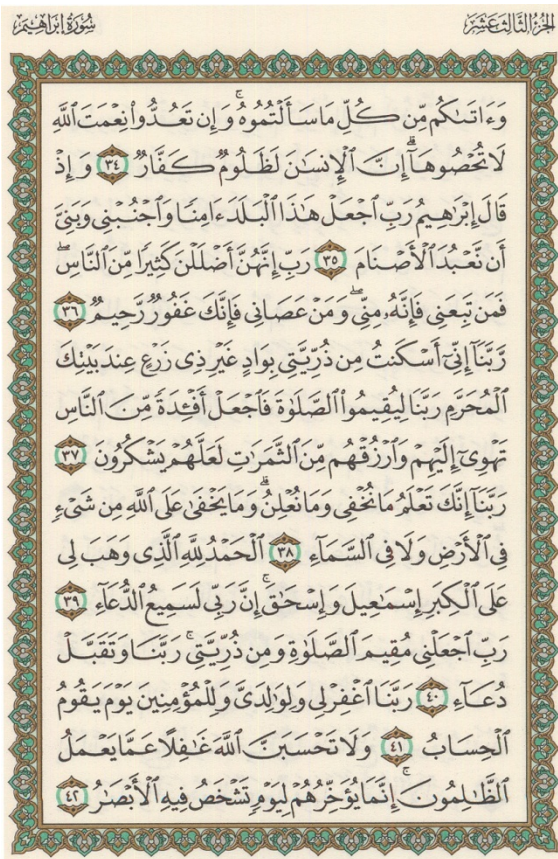 الجزء الثالث عشر
سورة إبراهيم
وَءَاتَىٰكُم مِّن كُلِّ مَا سَأَلْتُمُوهُۚ وَإِن تَعُدُّوا۟ نِعْمَتَ ٱللَّهِ
لَا تُحْصُوهَآۗ إِنَّ ٱلْإِنسَٰنَ لَظَلُومٌ كَفَّارٌ ٣٤ وَإِذْ
قَالَ إِبْرَٰهِيمُ رَبِّ ٱجْعَلْ هَٰذَا ٱلْبَلَدَ ءَامِنًا وَٱجْنُبْنِى وَبَنِىَّ
أَن نَّعْبُدَ ٱلْأَصْنَامَ ٣٥ رَبِّ إِنَّهُنَّ أَضْلَلْنَ كَثِيرًا مِّنَ ٱلنَّاسِۖ
فَمَن تَبِعَنِى فَإِنَّهُۥ مِنِّىۖ وَمَنْ عَصَانِى فَإِنَّكَ غَفُورٌ رَّحِيمٌ ٣٦
رَّبَّنَآ إِنِّىٓ أَسْكَنتُ مِن ذُرِّيَّتِى بِوَادٍ غَيْرِ ذِى زَرْعٍ عِندَ بَيْتِكَ
ٱلْمُحَرَّمِ رَبَّنَا لِيُقِيمُوا۟ ٱلصَّلَوٰةَ فَٱجْعَلْ أَفْـِٔدَةً مِّنَ ٱلنَّاسِ
تَهْوِىٓ إِلَيْهِمْ وَٱرْزُقْهُم مِّنَ ٱلثَّمَرَٰتِ لَعَلَّهُمْ يَشْكُرُونَ ٣٧
رَبَّنَآ إِنَّكَ تَعْلَمُ مَا نُخْفِى وَمَا نُعْلِنُۗ وَمَا يَخْفَىٰ عَلَى ٱللَّهِ مِن شَىْءٍ
فِى ٱلْأَرْضِ وَلَا فِى ٱلسَّمَآءِ ٣٨ ٱلْحَمْدُ لِلَّهِ ٱلَّذِى وَهَبَ لِى
عَلَى ٱلْكِبَرِ إِسْمَٰعِيلَ وَإِسْحَٰقَۚ إِنَّ رَبِّى لَسَمِيعُ ٱلدُّعَآءِ ٣٩
رَبِّ ٱجْعَلْنِى مُقِيمَ ٱلصَّلَوٰةِ وَمِن ذُرِّيَّتِىۚ رَبَّنَا وَتَقَبَّلْ
دُعَآءِ ٤٠ رَبَّنَا ٱغْفِرْ لِى وَلِوَٰلِدَىَّ وَلِلْمُؤْمِنِينَ يَوْمَ يَقُومُ
ٱلْحِسَابُ ٤١ وَلَا تَحْسَبَنَّ ٱللَّهَ غَٰفِلًا عَمَّا يَعْمَلُ
ٱلظَّٰلِمُونَۚ إِنَّمَا يُؤَخِّرُهُمْ لِيَوْمٍ تَشْخَصُ فِيهِ ٱلْأَبْصَٰرُ ٤٢